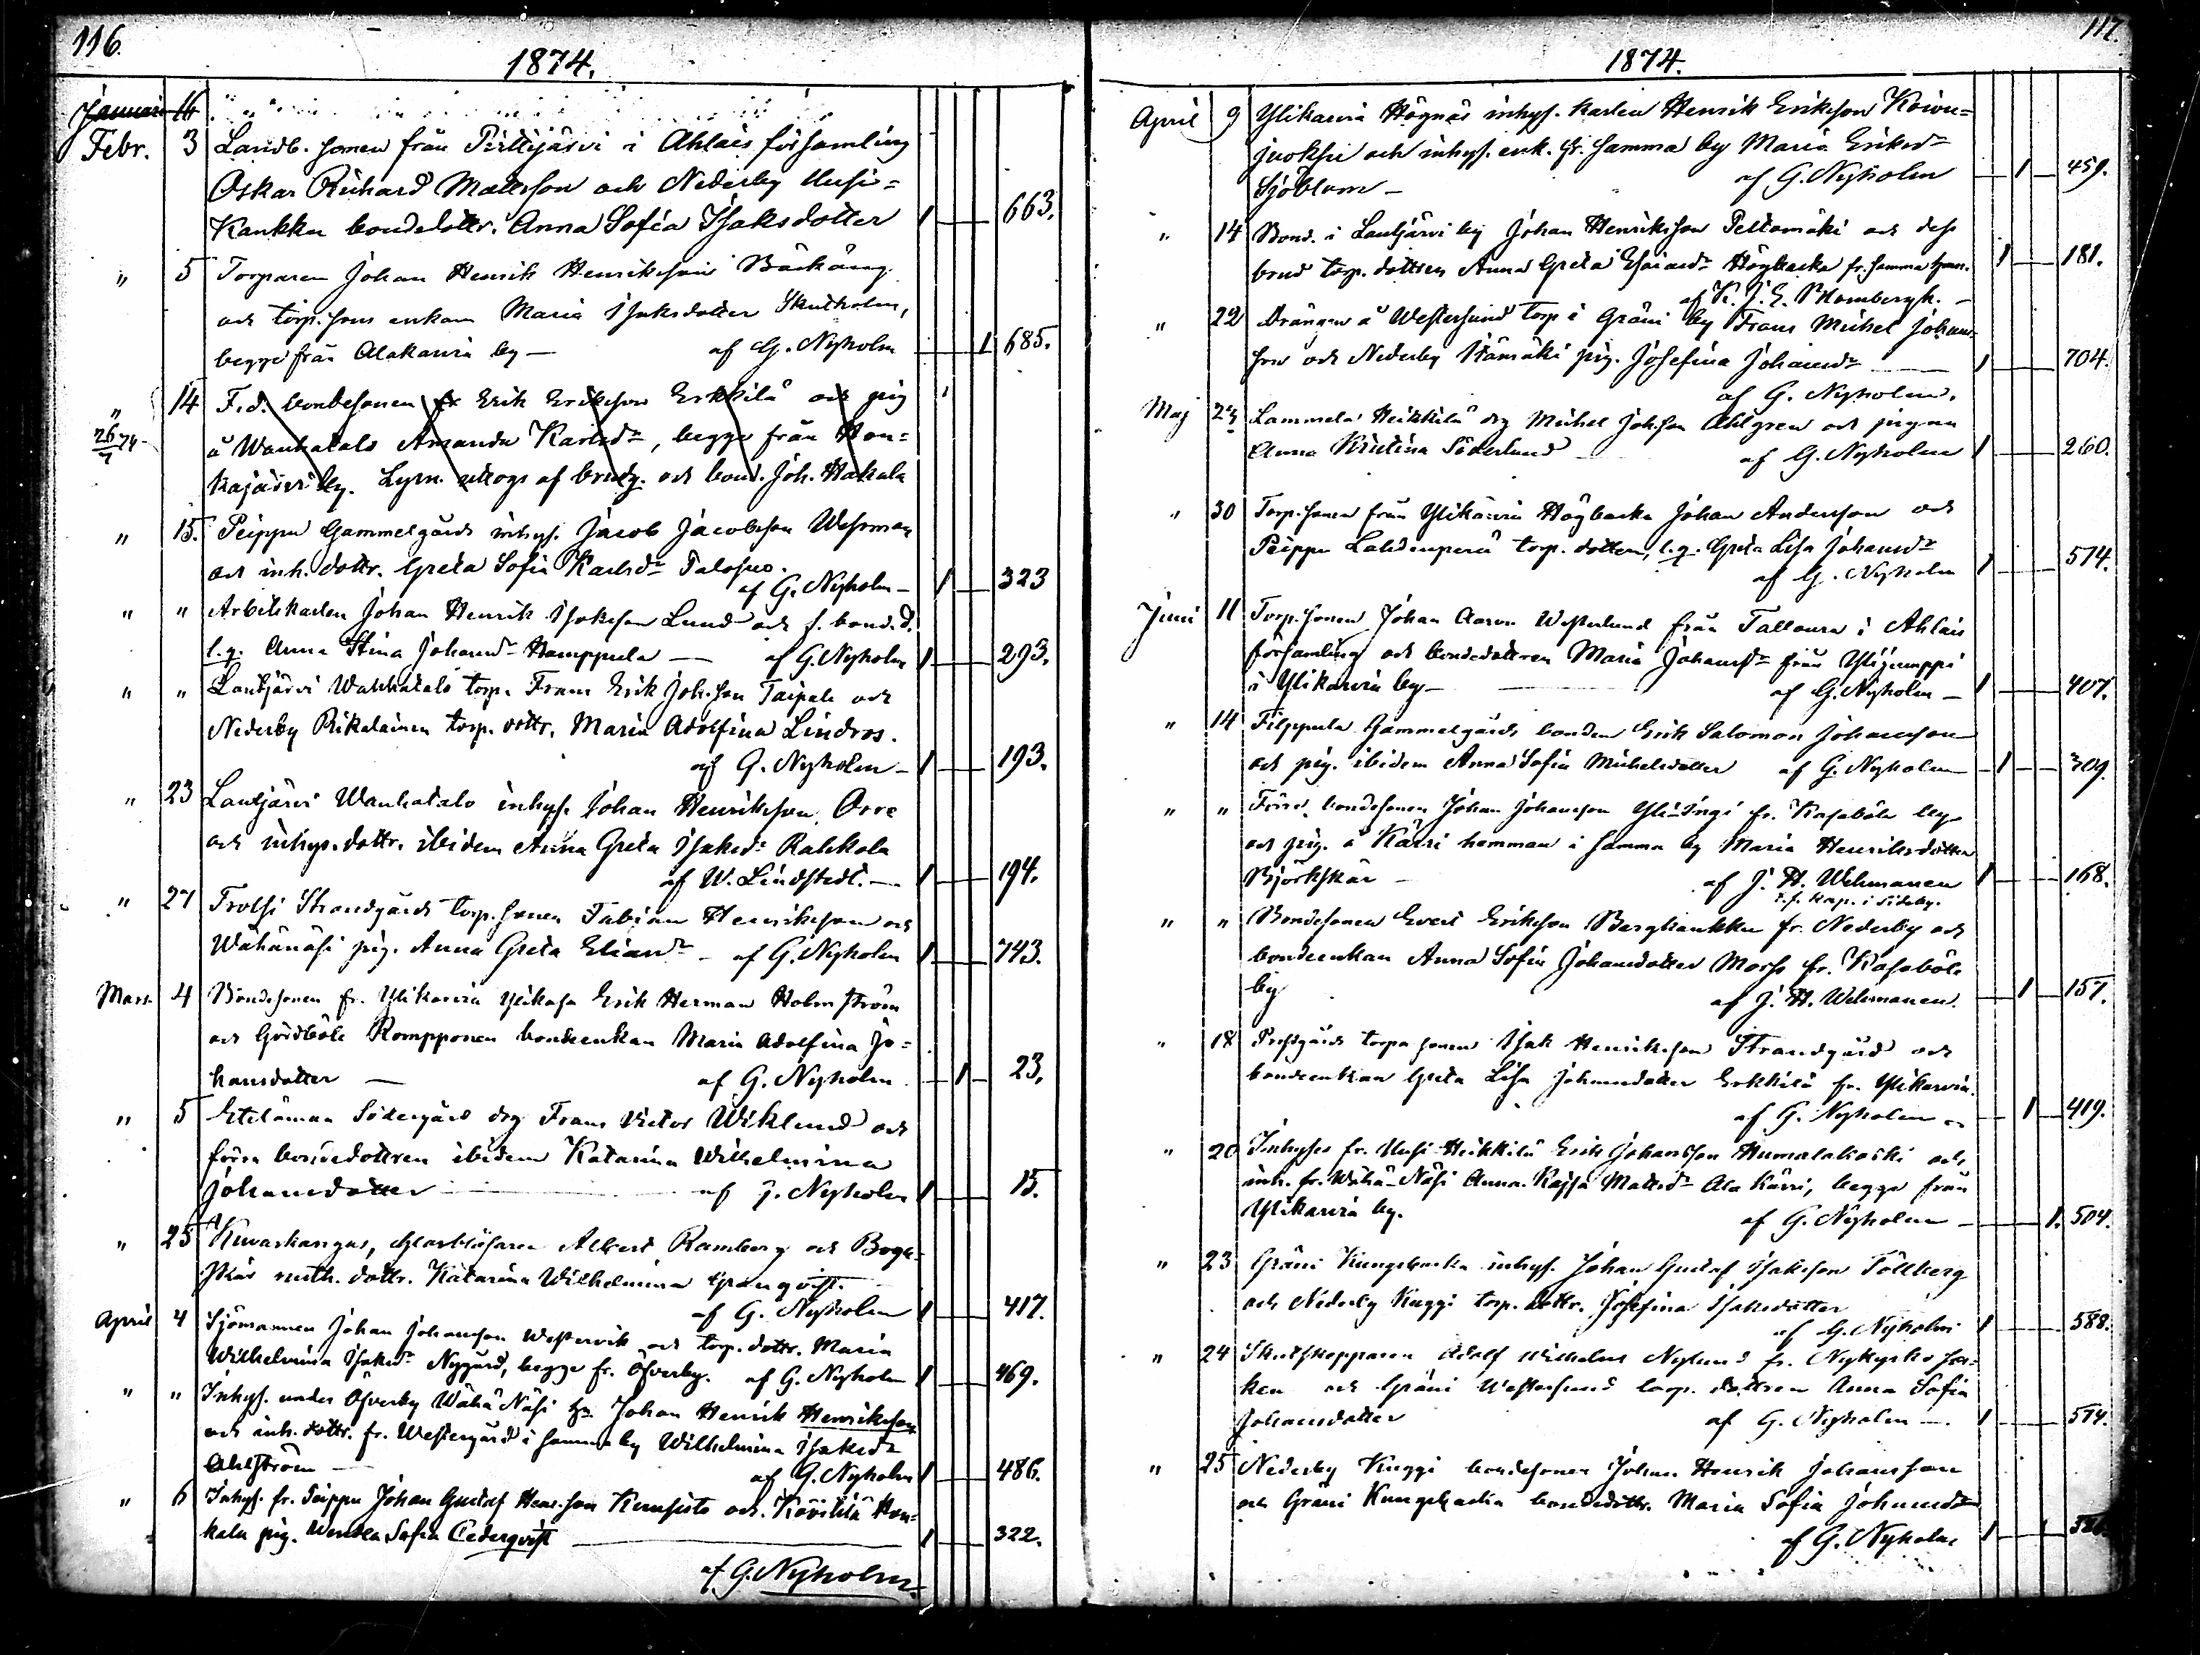 116.
1874.
Januari 16
Febr. 3 Landb. sonen från Pirttijärvi i Ahlais församling
Oskar Richard Mattsson och Nederby Uusi=
Kankku bondedottr. Anna Sofia Isaksdotter 1 663.
" 5 Torparen Johan Henrik Henriksson Backäng
och torp. sons enkan Maria Isaksdotter Skutholm,
begge från Alakarvia by — af G. Nyholm 1 685.
" 14 F.d. bondesonen fr Erik Eriksson Erkkilä och pig
26/7 74 å Wanhatalo Amanda Karlsdr, begge från Hon=
kajärvi by. Lysn. uttogs af brudg. och bond. Joh. Hakala
" 15. Peippu Gammelgårds inhys. Jacob Jacobsson Wesman
och inh. dottr. Greta Sofia Karlsdr Palosuo.
af G. Nyholm — 1 323
" " Arbetskarlen Johan Henrik Isaksson Lund och f. bond. d.
l.q. Anna Stina Johansdr Hamppula — af G. Nyholm 1 293.
" " Lautjärvi Wanhatalo torp. Frans Erik Johsson Taipale och
Nederby Rikalainen torp. dottr. Maria Adolfina Lindros.
af G. Nyholm — 1 193.
" 23 Lautjärvi Wanhatalo inhys. Johan Henriksson Orre
och inhys. dottr. ibidem Anna Greta Isaksdr Rahkola
af W. Lindstedt. — 1 194.
" 27 Trolssi Strandgårds torp. sonen Fabian Henriksson och
Wähänäsi pig. Anna Greta Eliasdr — af G. Nyholm 1 743.
Mars 4 Bondesonen fr. Ylikarvia Ylikasa Erik Herman Holmström
och Gårdböle Rompponen bondeenkan Maria Adolfina Jo=
hansdotter — af G. Nyholm 1 23.
" 5 Etelämaa Södergård drg Frans Victor Wiklund och
förra bondedottren ibidem Katarina Wilhelmina
Johansdotter — af G. Nyholm 1 15.
" 25 Kuvaskangas, Glasblåsaren Albert Ramberg och Boga=
skär dottr. Katarina Wilhelmina Granqvist.
af G. Nyholm 1 417.
April 4 Sjömannen Johan Johansson Westervik och torp. dottr. Maria
Wilhelmina Isaksdr Nygård, begge fr. Öfverby. af G. Nyholm 1 469.
" " Inhys. under Öfverby Wähä Näsi Johan Henrik Henriksson
och inh. dottr. fr. Westergård i samma by Wilhelmina Isaksdr
Ahlström — af G. Nyholm 1 486.
" 6 Inhys. fr. Peippu Johan Gustaf Henr.son Kernisto och Köörtilä Hon=
kala pig. Wendla Sofia Cederqvist 1 322.
af G. Nyholm.
117.
1874.
April 9 Ylikarvia Högnäs inhys. karlen Henrik Eriksson Koivu=
juoksu och inhys. enk. fr. samma by Maria Eriksdr
Sjöblom — af G. Nyholm 1 459.
" 14 Bond. i Lautjärvi by Johan Henriksson Peltomäki och dess
brud torp. dottren Anna Greta Esaiasdr Högbacka fr. samma by. 1 181.
af K. J. E. Stombergh. —
" 22 Drängen å Westersund torp i Gräni by Frans Michel Johans=
son och Nederby Hämäki pig. Josefina Johansdr 1 704.
af G. Nyholm.
Maj 23 Lammela Heikkilä drg Michel Johsson Ahlgren och pigan
Anna Kristina Söderlund af G. Nyholm 1 260.
" 30 Torp. sonen från Ylikarvia Högbacka Johan Andersson och
Peippu Lahdenperä torp. dottren, l.q. Greta Lisa Johansdr
af G. Nyholm 1 574.
Juni 11 Torp. sonen Johan Aaron Westerlund från Talloura i Ahlais
församling och bondedottren Maria Johansdr från Ylijumppi
i Ylikarvia by — af G. Nyholm — 1 407.
" 14 Filppula Gammelgårds bonden Erik Salomon Johansson
och pig. ibidem Anna Sofia Michelsdotter af G. Nyholm 1 309.
" " Förra bondesonen Johan Johansson Yli-Ingi fr. Kasaböle by
och pig. å Karri hemman i samma by Maria Henriksdotter
Björkskär — af J. H. Wehmanen 1 168.
t.f. kap. i Sideby.
" " Bondesonen Evert Eriksson Bergkankku fr. Nederby och
bondeenkan Anna Sofia Johansdotter Morss fr. Kasaböle
by af J. H. Wehmanen. 1 157.
" 18 Prestgårds torpa sonen Isak Henriksson Strandgård och
bondeenkan Greta Lisa Johansdotter Erkkilä fr. Ylikarvia.
af G. Nyholm — 1 419.
" 20 Inhyses fr. Uusi-Heikkilä Erik Johansson Humalakoski och
inh. fr. Wähä-Näsi Anna Kajsa Mattsdr Ala Karri, begge från
Ylikarvia by. af G. Nyholm — 1. 504.
" 23 Gräni Kungsbacka inhys. Johan Gustaf Isaksson Tollberg
och Nederby Kuggi torp. dottr. Josefina Isaksdotter
af G. Nyholm 1 588.
" 24 Skutskepparen Adolf Wilhelm Nylund fr. Nykyrko soc=
ken och Gräni Westersund torp. dottren Anna Sofia
Johansdotter af G. Nyholm — 1 574.
" 25 Nederby Kuggi bondesonen Johan Henrik Johansson
och Gräni Kungsbacka bondedottr. Maria Sofia Johansdr
af G. Nyholm 1